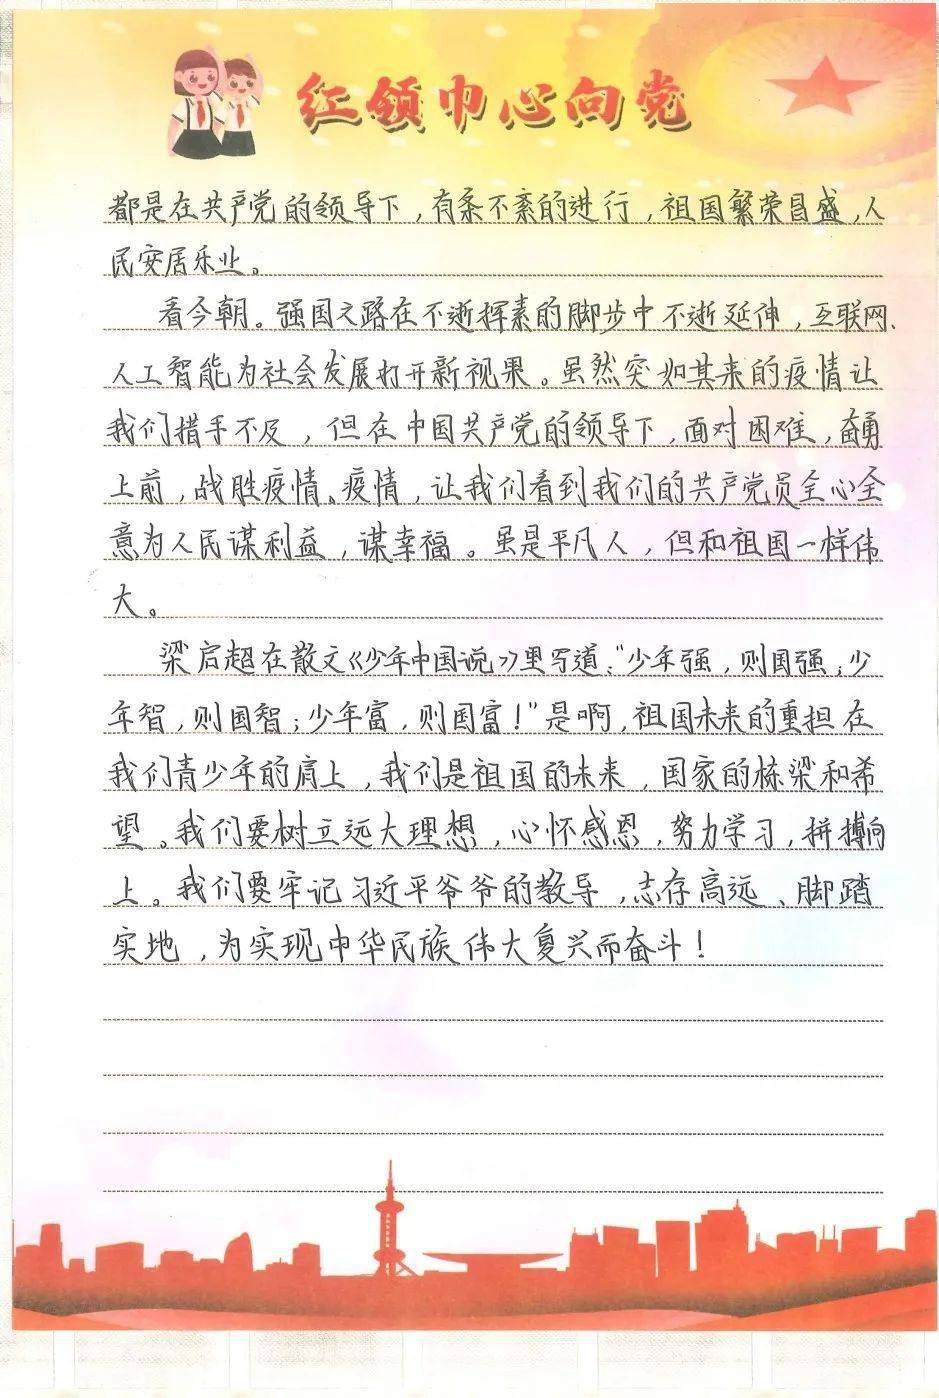 红领巾心向党
都是在共产党的领导下，有条不紊的进行，祖国繁荣昌盛，人
民安居乐业。
看今朝。强国之路在不逝探索的脚步中不逝延伸，互联网、
人工智能为社会发展打开新视果。虽然突如其来的疫情让
我们措手不及，但在中国共产党的领导下，面对困难，奋勇
上前，战胜疫情。疫情，让我们看到我们的共产党员全心全
意为人民谋利益，谋幸福。虽是平凡人，但和祖国一样伟
大。
梁启超在散文《少年中国说》里写道："少年强，则国强；少
年智，则国智；少年富，则国富！"是啊，祖国未来的重担在
我们青少年的肩上，我们是祖国的未来，国家的栋梁和希
望。我们要树立远大理想，心怀感恩，努力学习，拼搏向
上。我们要牢记习近平爷爷的教导，志存高远、脚踏
实地，为实现中华民族伟大复兴而奋斗！